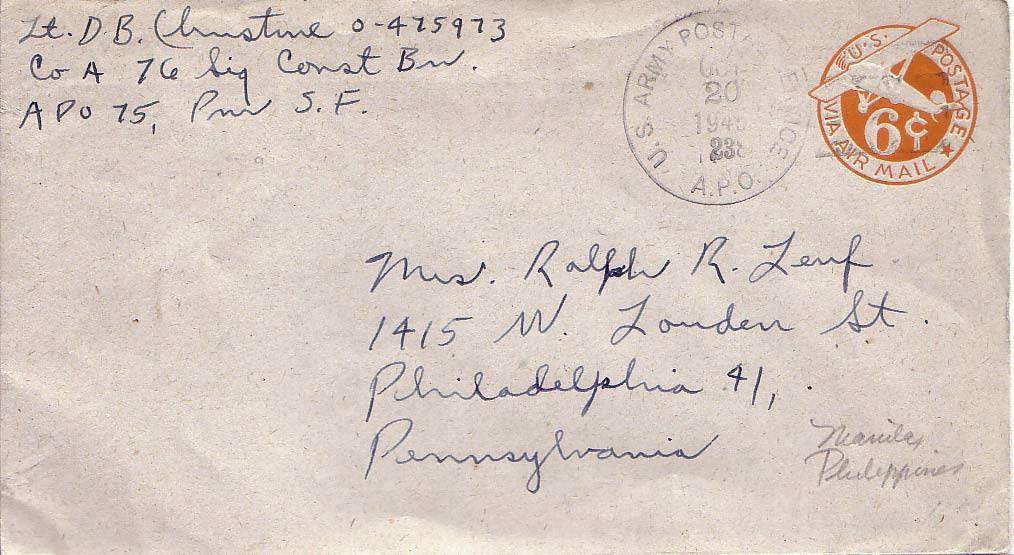 Lt. D B. Christine 0-475973
Co A 76 Sig Const Bn.
APO 75, Pm S. F.
U.S. ARMY POSTAL SERVICE
20
A.P.O.
U.S. POSTAGE
6¢
VIA AIR MAIL
Mrs. Ralph R. Lenf
1415 W. Louden St.
Philadelphia 41,
Pennsylvania
Manila,
Philippines